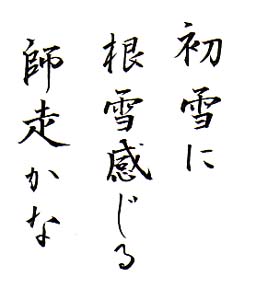 初雪に
根雪感じる
師走かな